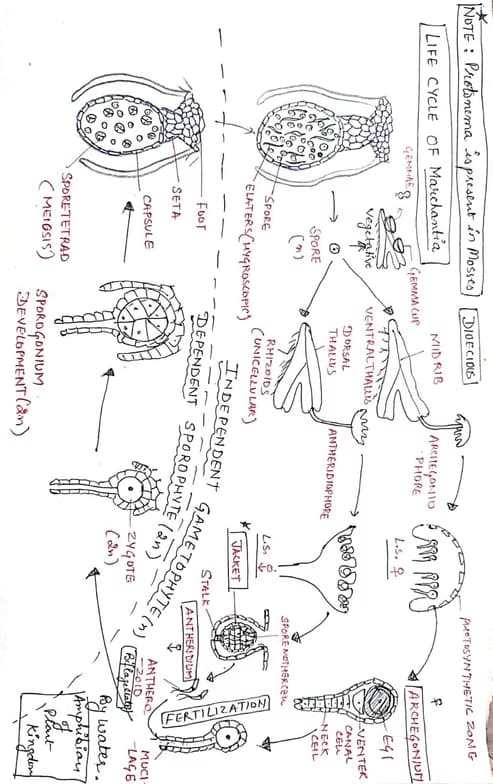 ★
NOTE : Protonema is present in Mosses
LIFE CYCLE OF Marchantia
DIOECIOUS
GEMMAE
GEMMA CUP
Vegetative
MIDRIB
VENTRAL THALLUS
ARCHEGONIO
PHORE
L.S. ♀
PHOTOSYNTHETIC ZONE
ARCHEGONIUM
♀
EGG
VENTER
CANAL
CELL
NECK
CELL
SPORE
(n)
DORSAL
THALLUS
RHIZOIDS
(UNICELLULAR)
ANTHERIDIOPHORE
L.S. ♂
★
JACKET
STALK
SPORE MOTHER CELL
ANTHERIDIUM
♂
ANTHERO
ZOID
Biflagellate
FERTILIZATION
MUCI
LAGE
By water.
Amphibian
of
Plant
Kingdom
SPORE
ELATERS (HYGROSCOPIC)
INDEPENDENT GAMETOPHYTE (n)
DEPENDENT SPOROPHYTE (2n)
FOOT
SETA
CAPSULE
SPORETETRAD
(MEIOSIS)
SPOROGONIUM
DEVELOPMENT (2n)
ZYGOTE
(2n)